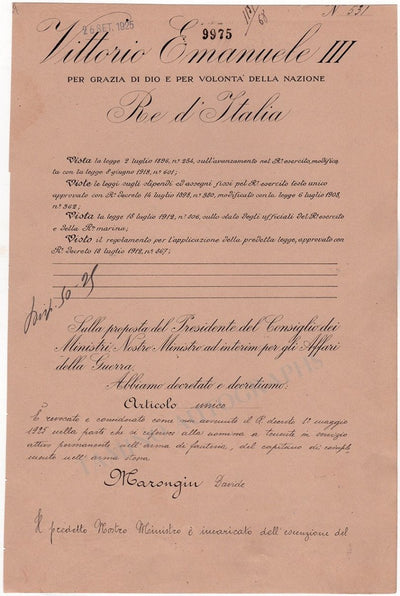 25 SET. 1925
9975
N. 531
Vittorio Emanuele III
PER GRAZIA DI DIO E PER VOLONTA' DELLA NAZIONE
Re d'Italia
Vista la legge 2 luglio 1896, n° 254, sull'avanzamento nel R° esercito, modifica
ta con la legge 8 giugno 1913, n° 601;
Viste le leggi sugli stipendi ed assegni fissi pel R° esercito testo unico
approvato con R° Decreto 14 luglio 1898, n° 380, modificato con la legge 6 luglio 1908,
n° 362;
Vista la legge 18 luglio 1912, n° 806, sullo stato degli ufficiali del R° esercito
e della R° marina;
Visto il regolamento per l'applicazione della predetta legge, approvato con
R° Decreto 18 luglio 1912, n° 867;
Sulla proposta del Presidente del Consiglio dei
Ministri Nostro Ministro ad interim per gli Affari
della Guerra
Abbiamo decretato e decretiamo:
Articolo unico
E' revocato e considerato come non avvenuto il R. decreto 1° maggio
1925 nella parte che si riferisce alla nomina a tenente in servizio
attivo permanente nell'arma di fanteria, del capitano di compl
mento nell'arma stessa
Marongiu Davide
Il predetto Nostro Ministro è incaricato dell'esecuzione del